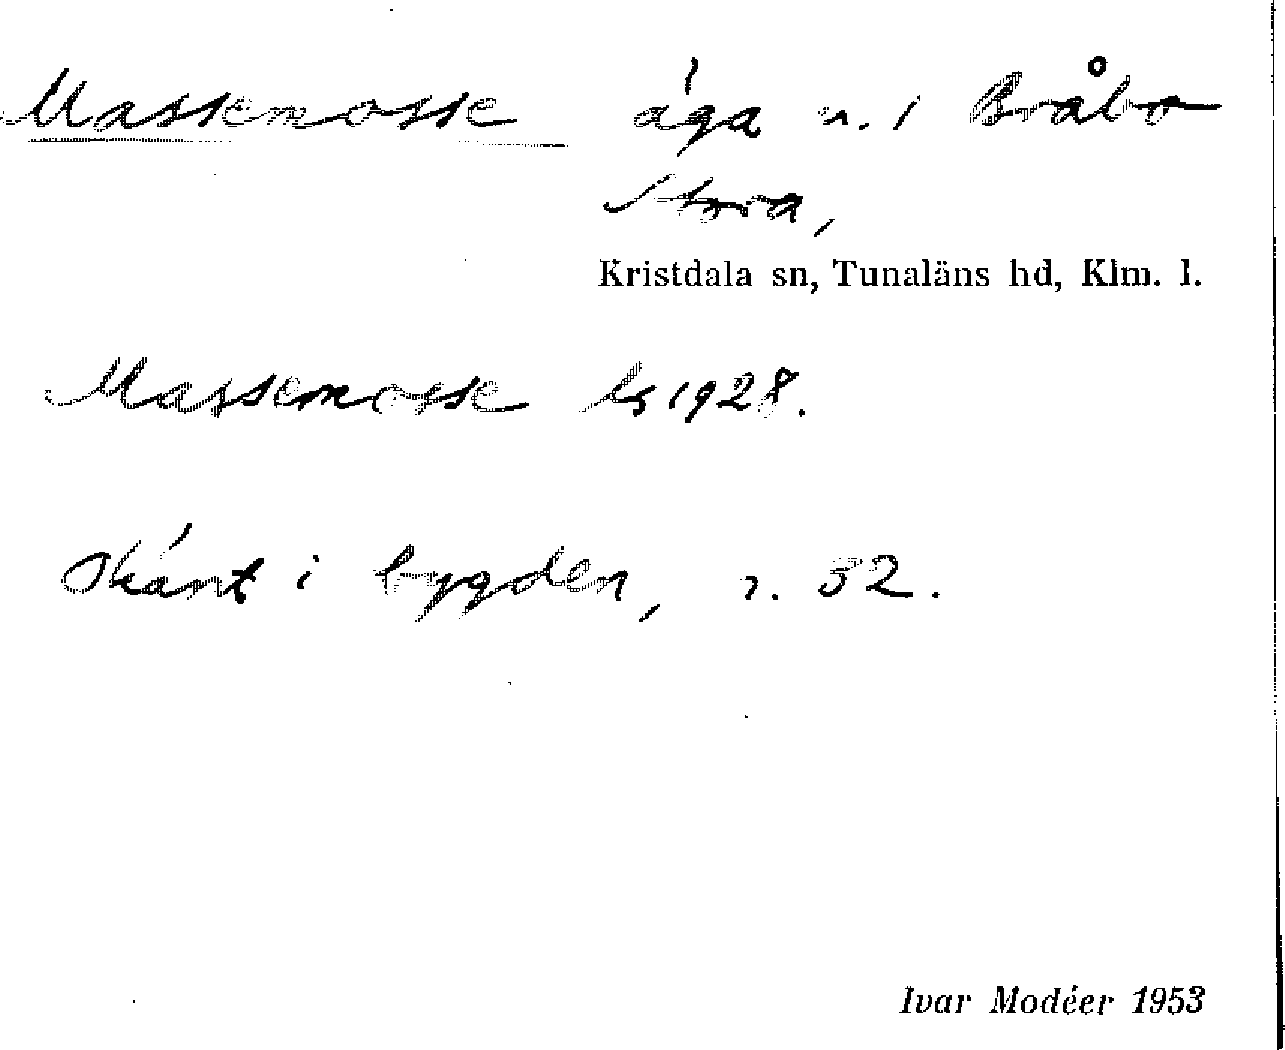 Massemosse äga n. 1 Bråbo
Stora,
Kristdala sn, Tunaläns hd, Klm. l.
Massemosse ls 1928.
Okänt i bygden, r. 52.
Ivar Modéer 1953